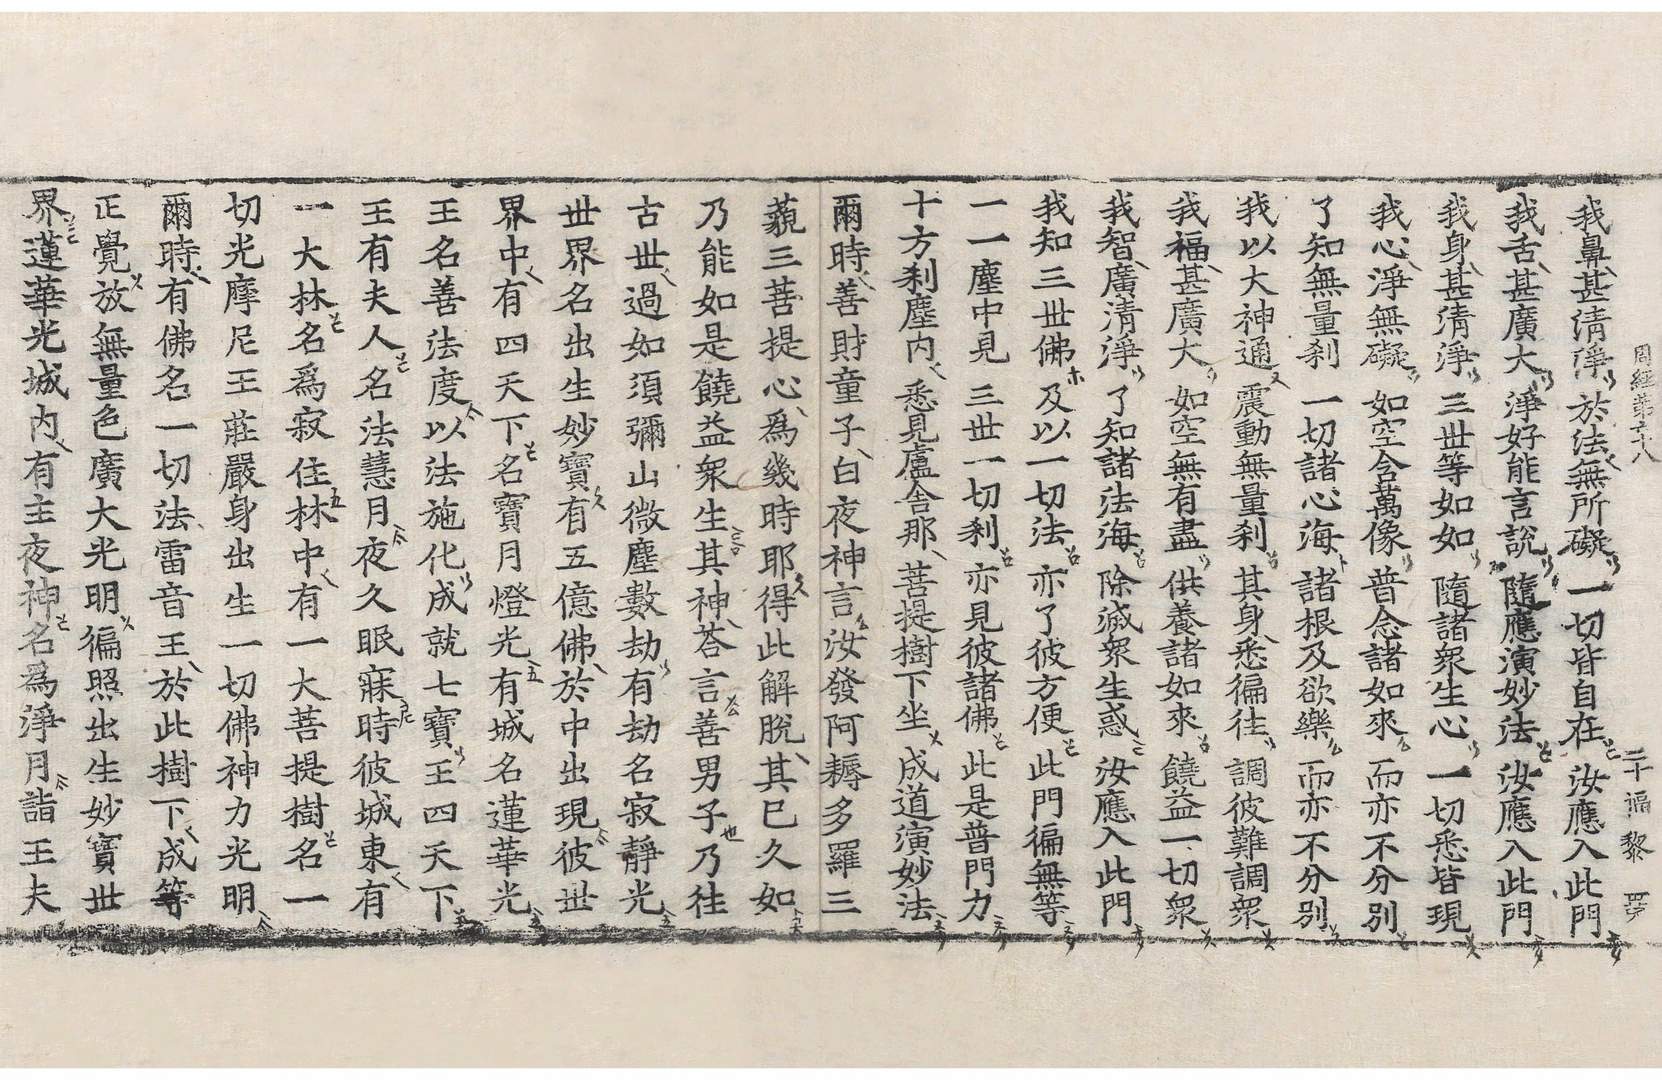 我鼻甚清淨 於法無所礙 一切皆自在 汝應入此門
我舌甚廣大 淨好能言說 隨應演妙法 汝應入此門
我身甚清淨 三世等如如 隨諸衆生心 一切悉皆現
我心淨無礙 如空含萬像 普念諸如來 而亦不分別
了知無量刹 一切諸心海 諸根及欲樂 而亦不分別
我以大神通 震動無量刹 其身悉徧往 調彼難調衆
我福甚廣大 如空無有盡 供養諸如來 饒益一切衆
我智廣淸淨 了知諸法海 除滅衆生惑 汝應入此門
我知三世佛 及以一切法 亦了彼方便 此門徧無等
一一塵中見 三世一切刹 亦見彼諸佛 此是普門力
十方刹塵內 悉見盧舍那 菩提樹下坐 成道演妙法
爾時善財童子白夜神言汝發阿耨多羅三
藐三菩提心爲幾時耶得此解脫其已久如
乃能如是饒益衆生其神荅言善男子乃往
古世過如須彌山微塵數劫有劫名寂靜光
世界名出生妙寶有五億佛於中出現彼世
界中有四天下名寶月燈光有城名蓮華光
王名善法度以法施化成就七寶王四天下
王有夫人名法慧月夜久眠寐時彼城東有
一大林名爲寂住林中有一大菩提樹名一
切光摩尼王莊嚴身出生一切佛神力光明
爾時有佛名一切法雷音王於此樹下成等
正覺放無量色廣大光明徧照出生妙寶世
界蓮華光城內有主夜神名爲淨月詣王夫
周經第六十八 二十福 黎